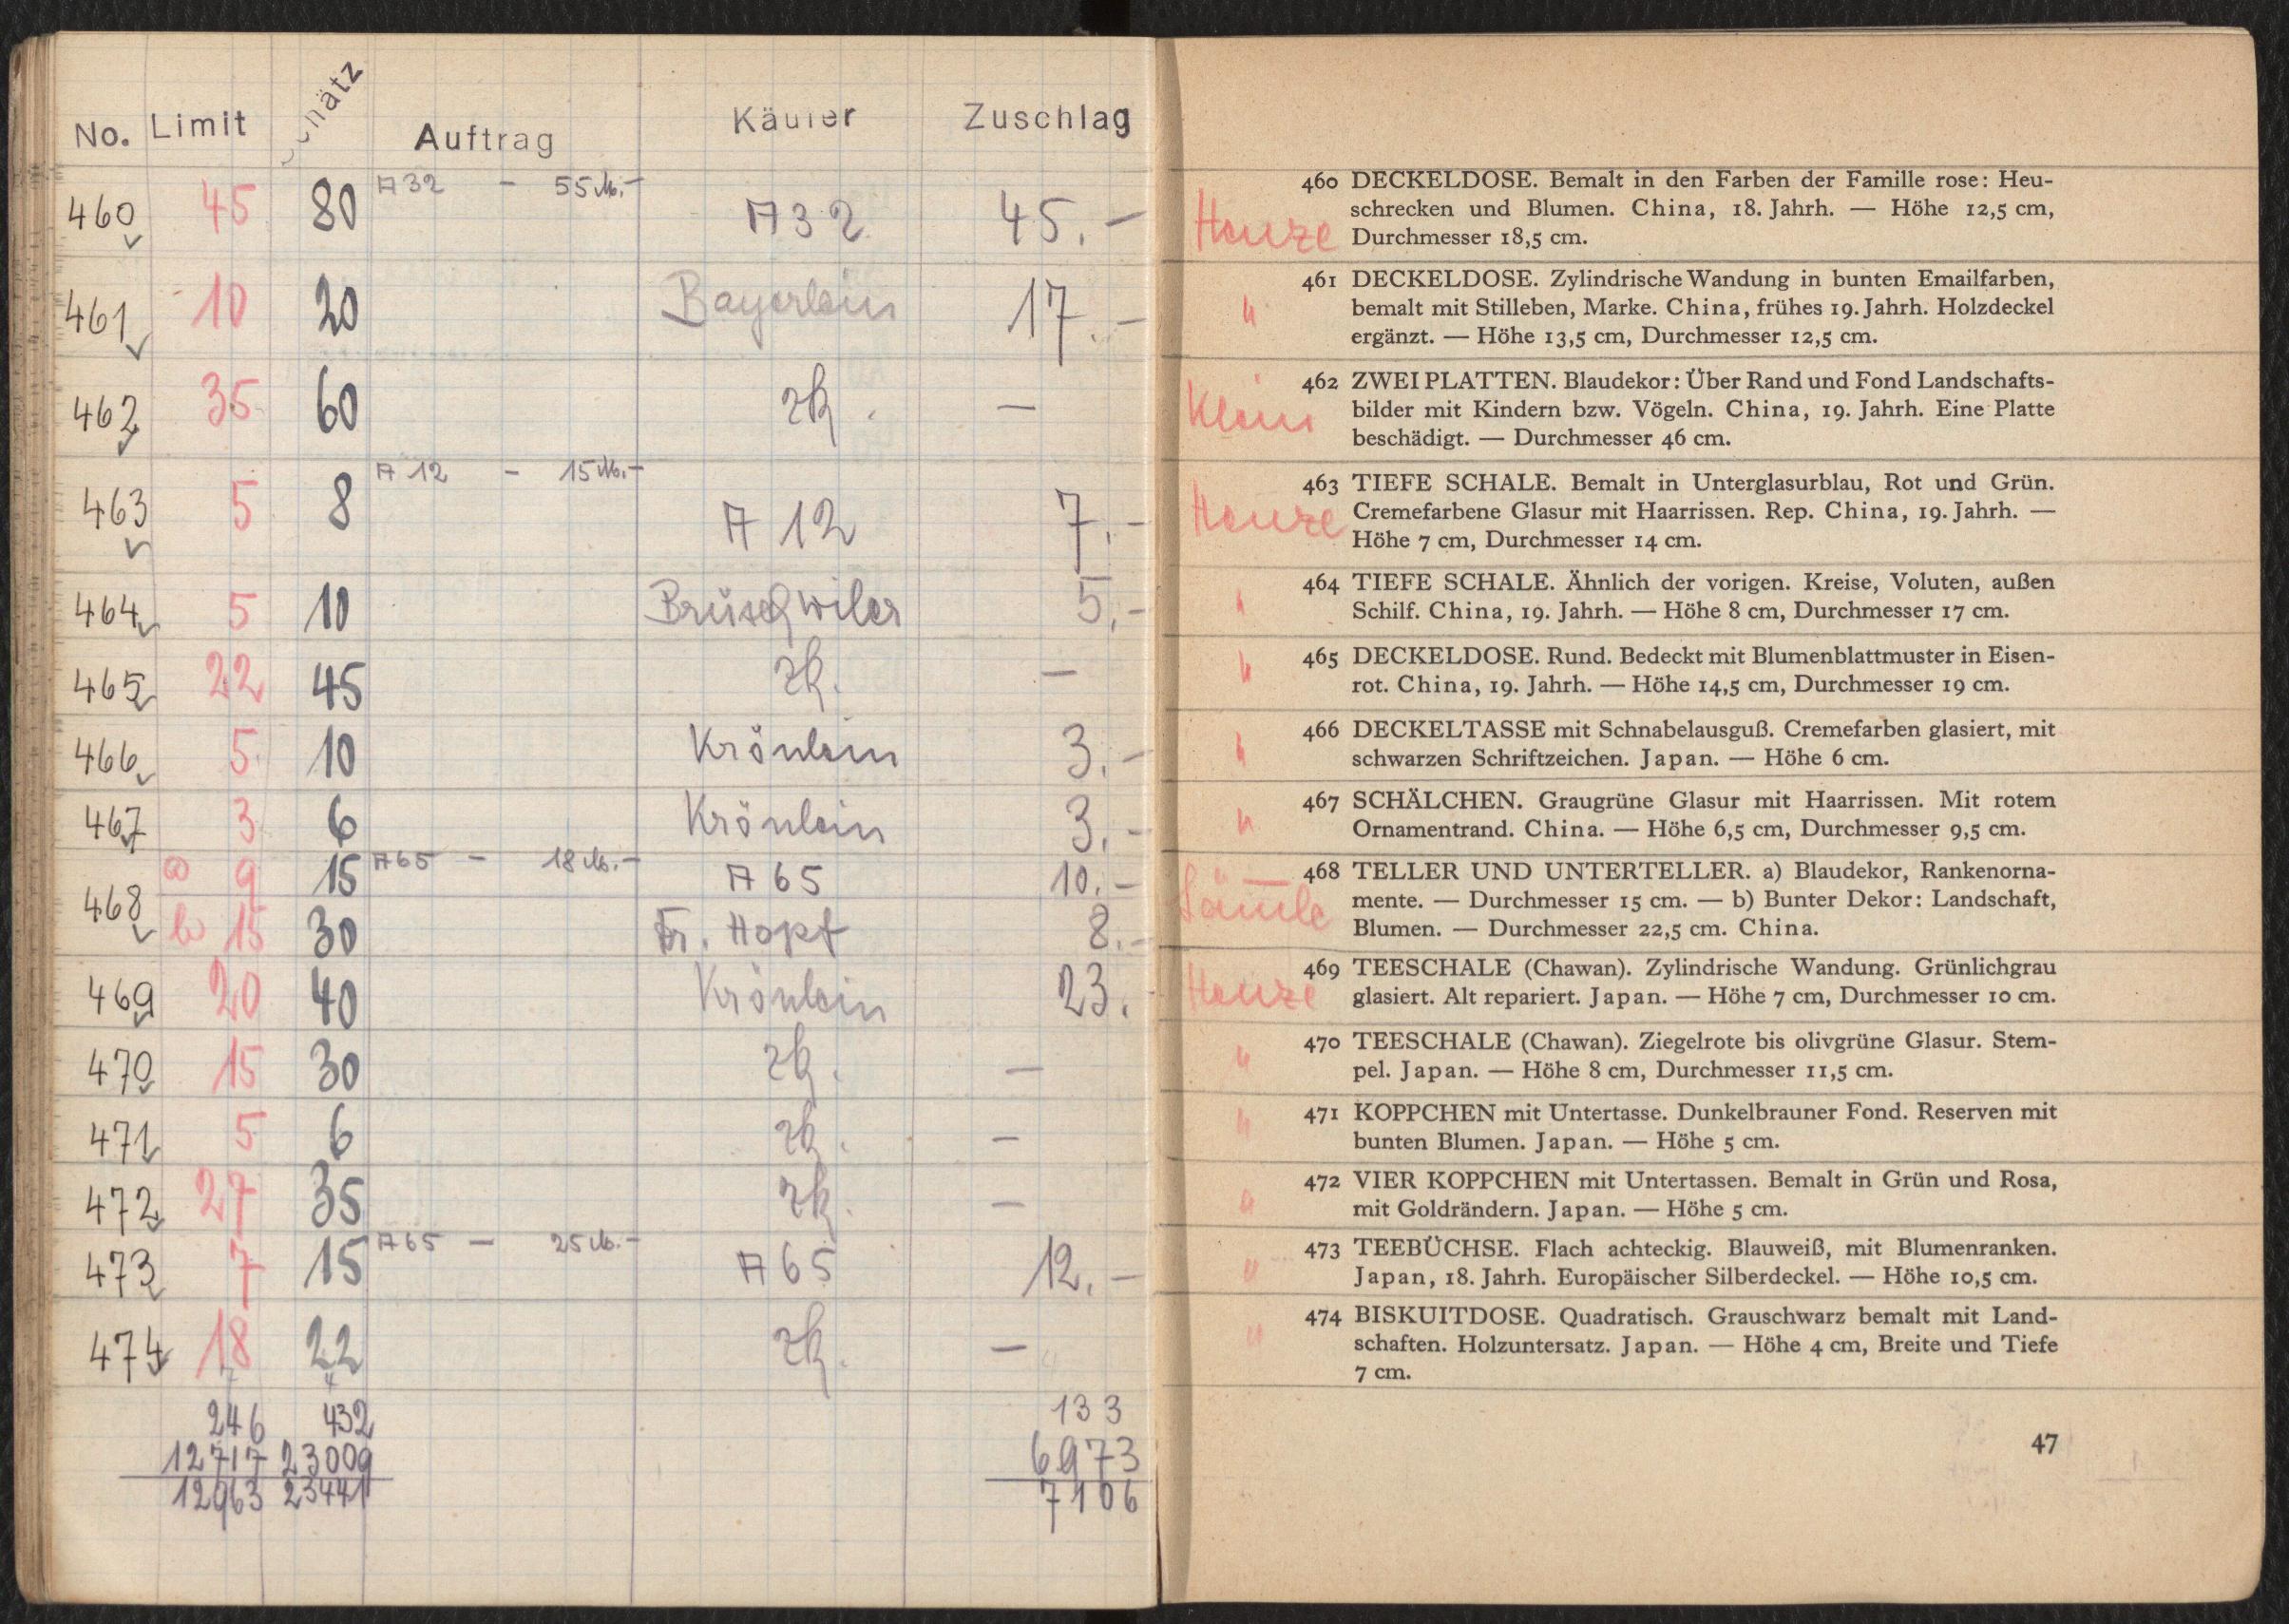 No. Limit Schätz Auftrag Käufer Zuschlag
A 32 – 55 M.–
460 45 80 A 32 45.–
461 10 20 Bayerlein 17.–
462 35 60 zk. –
A 12 – 15 M.–
463 5 8 A 12 7.–
464 5 10 Brüschwiler 5.–
465 22 45 zk. –
466 5 10 Krönlein 3.–
467 3 6 Krönlein 3.–
A 65 – 18 M.–
468 a) 9 15 A 65 10.–
b) 15 30 Fr. Hopf 8.–
469 20 40 Krönlein 23.
470 15 30 zk. –
471 5 6 zk. –
472 27 35 zk. –
A 65 – 25 M.–
473 7 15 A 65 12.–
474 18 22 zk. –
246 432 133
12717 23009 6973
12963 23441 7106
460 DECKELDOSE. Bemalt in den Farben der Famille rose: Heu-
Henze schrecken und Blumen. China, 18. Jahrh. — Höhe 12,5 cm,
Durchmesser 18,5 cm.
461 DECKELDOSE. Zylindrische Wandung in bunten Emailfarben,
" bemalt mit Stilleben, Marke. China, frühes 19. Jahrh. Holzdeckel
ergänzt. — Höhe 13,5 cm, Durchmesser 12,5 cm.
462 ZWEI PLATTEN. Blaudekor: Über Rand und Fond Landschafts-
Klein bilder mit Kindern bzw. Vögeln. China, 19. Jahrh. Eine Platte
beschädigt. — Durchmesser 46 cm.
463 TIEFE SCHALE. Bemalt in Unterglasurblau, Rot und Grün.
Henze Cremefarbene Glasur mit Haarrissen. Rep. China, 19. Jahrh. —
Höhe 7 cm, Durchmesser 14 cm.
464 TIEFE SCHALE. Ähnlich der vorigen. Kreise, Voluten, außen
" Schilf. China, 19. Jahrh. — Höhe 8 cm, Durchmesser 17 cm.
" 465 DECKELDOSE. Rund. Bedeckt mit Blumenblattmuster in Eisen-
rot. China, 19. Jahrh. — Höhe 14,5 cm, Durchmesser 19 cm.
466 DECKELTASSE mit Schnabelausguß. Cremefarben glasiert, mit
" schwarzen Schriftzeichen. Japan. — Höhe 6 cm.
467 SCHÄLCHEN. Graugrüne Glasur mit Haarrissen. Mit rotem
" Ornamentrand. China. — Höhe 6,5 cm, Durchmesser 9,5 cm.
468 TELLER UND UNTERTELLER. a) Blaudekor, Rankenorna-
mente. — Durchmesser 15 cm. — b) Bunter Dekor: Landschaft,
Blumen. — Durchmesser 22,5 cm. China.
469 TEESCHALE (Chawan). Zylindrische Wandung. Grünlichgrau
Henze glasiert. Alt repariert. Japan. — Höhe 7 cm, Durchmesser 10 cm.
470 TEESCHALE (Chawan). Ziegelrote bis olivgrüne Glasur. Stem-
" pel. Japan. — Höhe 8 cm, Durchmesser 11,5 cm.
" 471 KOPPCHEN mit Untertasse. Dunkelbrauner Fond. Reserven mit
bunten Blumen. Japan. — Höhe 5 cm.
472 VIER KOPPCHEN mit Untertassen. Bemalt in Grün und Rosa,
" mit Goldrändern. Japan. — Höhe 5 cm.
473 TEEBÜCHSE. Flach achteckig. Blauweiß, mit Blumenranken.
" Japan, 18. Jahrh. Europäischer Silberdeckel. — Höhe 10,5 cm.
474 BISKUITDOSE. Quadratisch. Grauschwarz bemalt mit Land-
" schaften. Holzuntersatz. Japan. — Höhe 4 cm, Breite und Tiefe
7 cm.
47